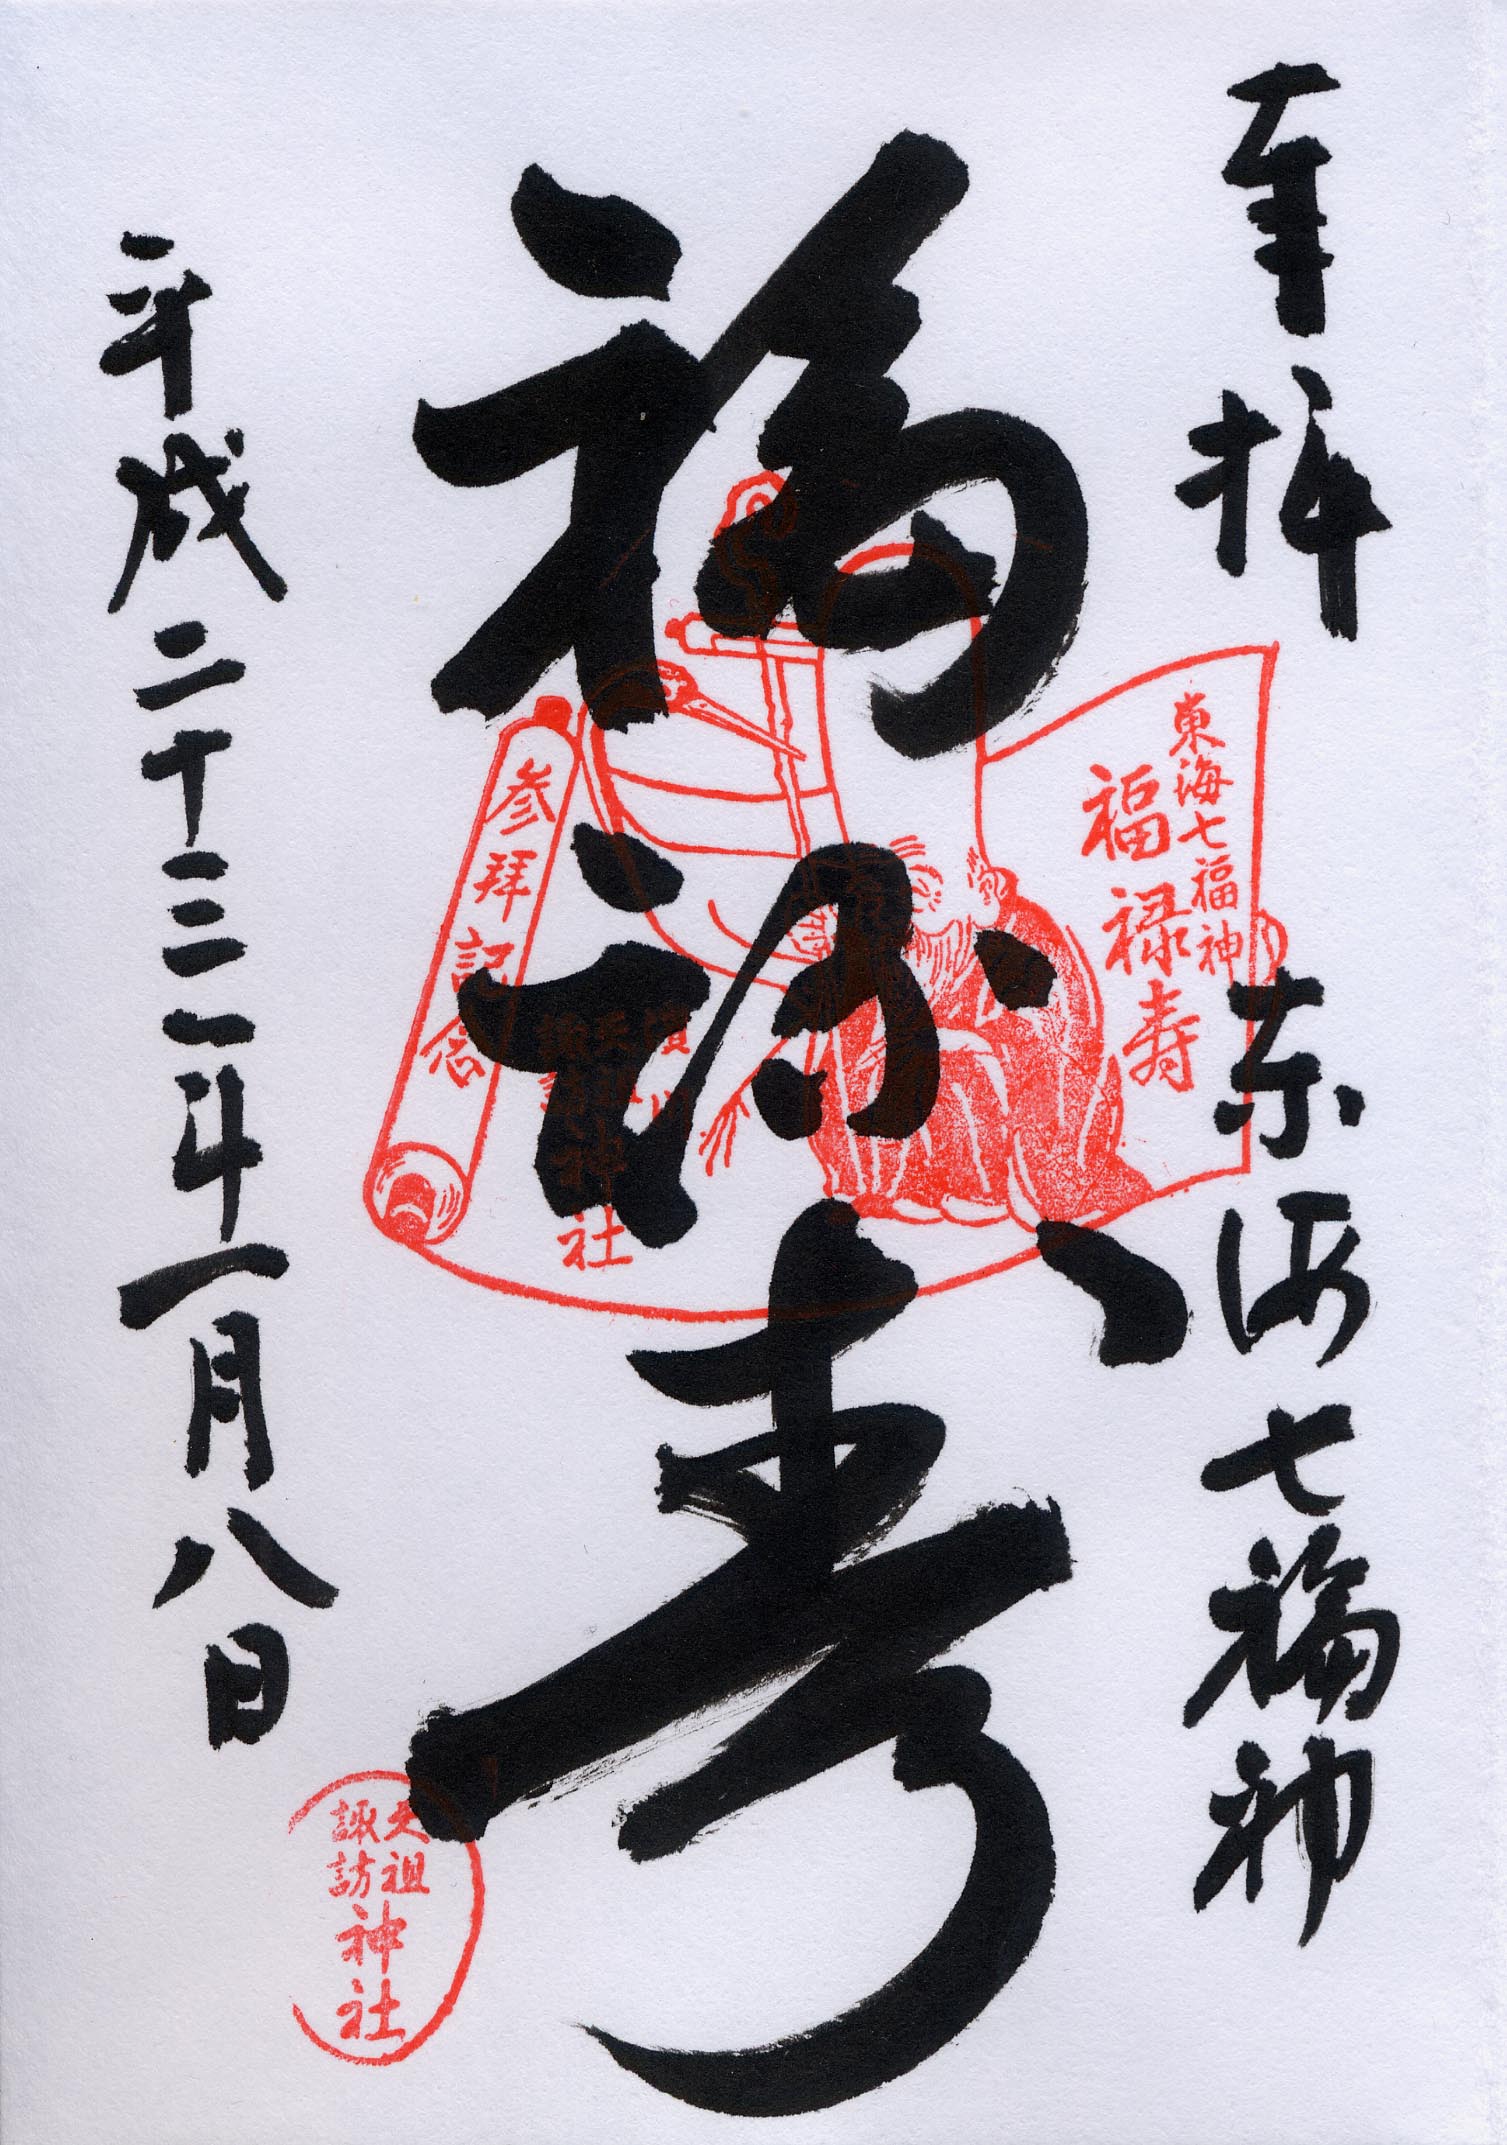 奉拝
東海七福神
福禄寿
平成二十三年一月八日
東海七福神
福禄寿
参拝記念
濱川
天祖
諏訪
神社
天祖
諏訪
神社